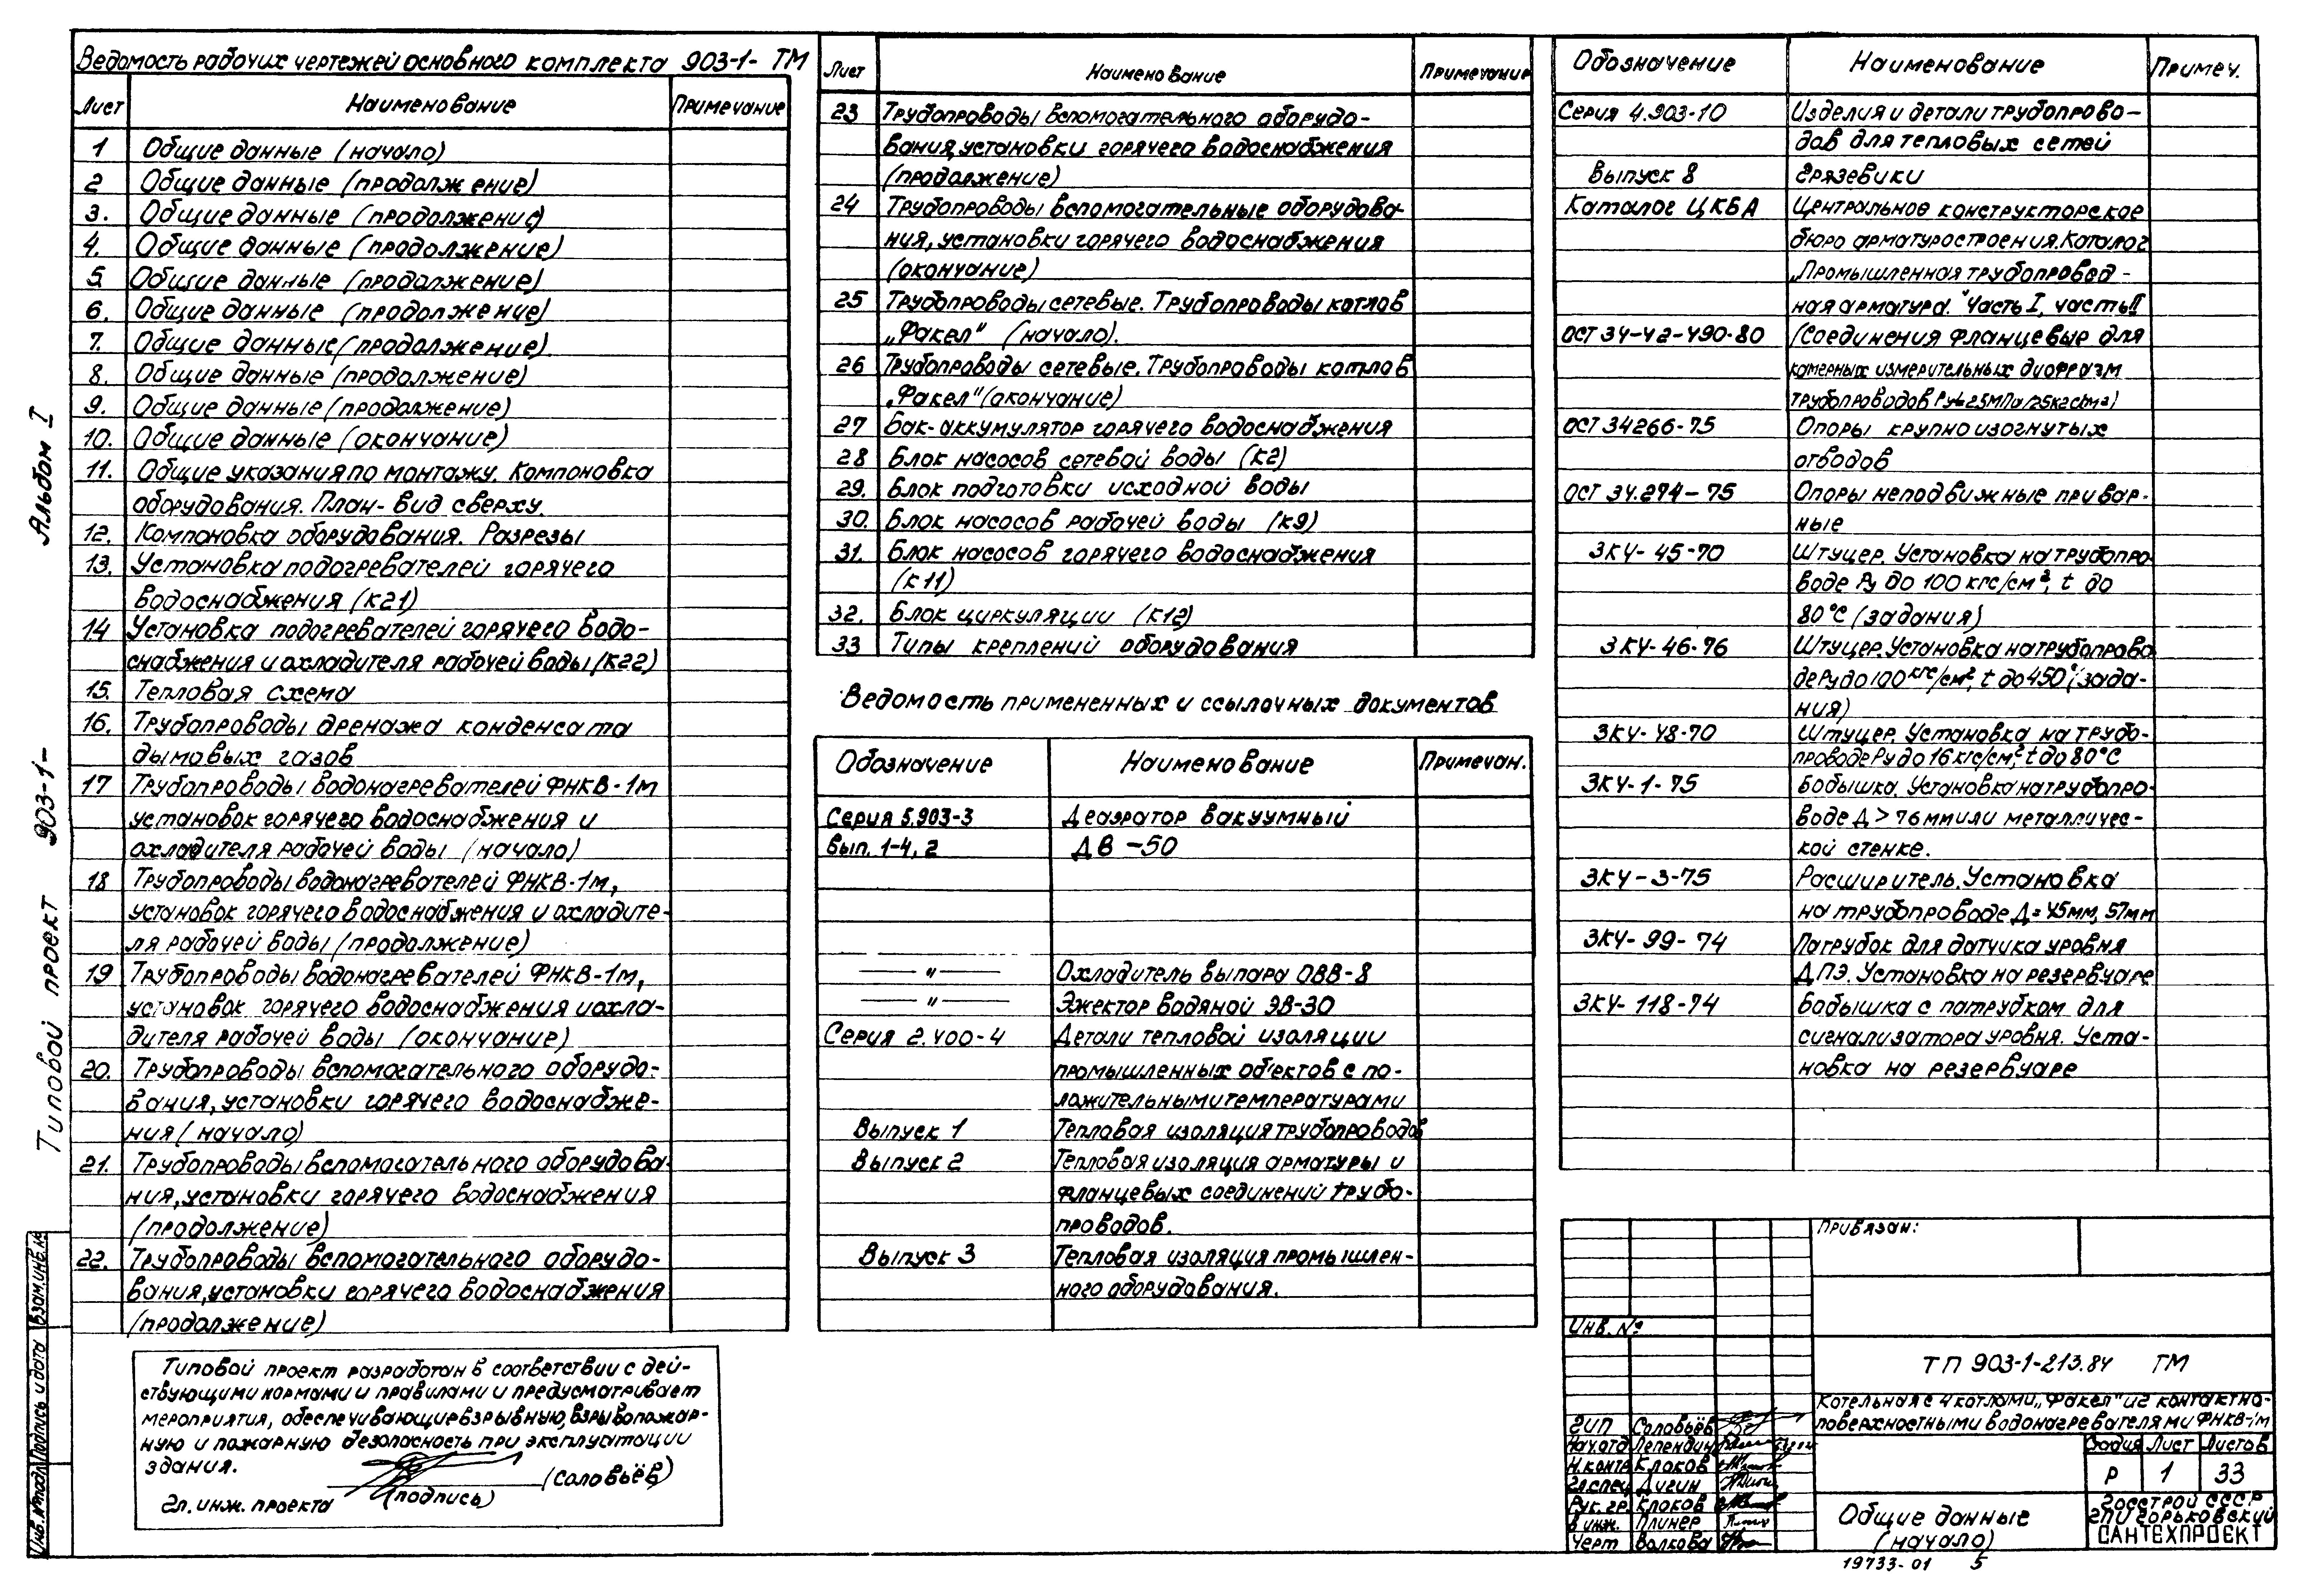 Альбом I
Типовой проект 903-1-
Взам.инв.№
Подпись и дата
Инв.№подл.
Ведомость рабочих чертежей основного комплекта 903-1- ТМ
Лист Наименование Примечание
1 Общие данные (начало)
2 Общие данные (продолжение)
3. Общие данные (продолжение)
4. Общие данные (продолжение)
5. Общие данные (продолжение)
6. Общие данные (продолжение)
7. Общие данные (продолжение)
8. Общие данные (продолжение)
9. Общие данные (продолжение)
10. Общие данные (окончание)
11. Общие указания по монтажу. Компоновка
оборудования. План-вид сверху.
12. Компоновка оборудования. Разрезы
13. Установка подогревателей горячего
водоснабжения (к21)
14 Установка подогревателей горячего водо-
снабжения и охладителя рабочей воды (к22)
15. Тепловая схема
16. Трубопроводы дренажа конденсата
дымовых газов
17 Трубопроводы водонагревателей ФНКВ-1м
установок горячего водоснабжения и
охладителя рабочей воды (начало)
18 Трубопроводы водонагревателей ФНКВ-1м,
установок горячего водоснабжения и охладите-
ля рабочей воды (продолжение)
19 Трубопроводы водонагревателей ФНКВ-1м,
установок горячего водоснабжения и охла-
дителя рабочей воды (окончание)
20. Трубопроводы вспомогательного оборудо-
вания, установки горячего водоснабже-
ния (начало)
21. Трубопроводы вспомогательного оборудова-
ния, установки горячего водоснабжения
(продолжение)
22. Трубопроводы вспомогательного оборудо-
вания, установки горячего водоснабжения
(продолжение)
Типовой проект разработан в соответствии с дей-
ствующими нормами и правилами и предусматривает
мероприятия, обеспечивающие взрывную, взрывопожар-
ную и пожарную безопасность при эксплуатации
здания.
(Соловьёв)
Гл. инж. проекта (подпись)
Лист Наименование Примечание
23 Трубопроводы вспомогательного оборудо-
вания, установки горячего водоснабжения
(продолжение)
24 Трубопроводы вспомогательные оборудова-
ния, установки горячего водоснабжения
(окончание)
25 Трубопроводы сетевые. Трубопроводы котлов
„Факел" (начало).
26 Трубопроводы сетевые. Трубопроводы котлов
„Факел" (окончание)
27 Бак-аккумулятор горячего водоснабжения
28 Блок насосов сетевой воды (к2)
29. Блок подготовки исходной воды
30. Блок насосов рабочей воды (к9)
31. Блок насосов горячего водоснабжения
(к11)
32. Блок циркуляции (к12)
33 Типы креплений оборудования
Ведомость примененных и ссылочных документов
Обозначение Наименование Примечан.
Серия 5.903-3 Деаэратор вакуумный
Вып. 1-4, 2 ДВ-50
— " — Охладитель выпара ОВВ-8
— " — Эжектор водяной ЭВ-30
Серия 2.400-4 Детали тепловой изоляции
промышленных объектов с по-
ложительными температурами
Выпуск 1 Тепловая изоляция трубопроводов
Выпуск 2 Тепловая изоляция арматуры и
фланцевых соединений трубо-
проводов.
Выпуск 3 Тепловая изоляция промышлен-
ного оборудования.
Обозначение Наименование Примеч.
Серия 4.903-10 Изделия и детали трубопрово-
дов для тепловых сетей
Выпуск 8 Грязевики
Каталог ЦКБА Центральное конструкторское
бюро арматуростроения. Каталог
„Промышленная трубопровод-
ная арматура." Часть I, часть II
ОСТ 34-42-490-80 (Соединения фланцевые для
камерных измерительных диафразм
трубопроводов Ру≤2,5МПа/25кгс/см²)
ОСТ 34266-75 Опоры крупно изогнутых
отводов
ОСТ 34.274-75 Опоры неподвижные привар-
ные
ЗК4-45-70 Штуцер. Установка на трубопро-
воде Ру до 100 кгс/см², t до
80°С (задания)
ЗК4-46-76 Штуцер. Установка на трубопрово
де Ру до 100 кгс/см², t до 450° (зада-
ния)
ЗК4-48-70 Штуцер. Установка на трубо-
проводе Ру до 16 кгс/см², t до 80°С
ЗК4-1-75 Бобышка. Установка на трубопро-
воде Д > 76 мм или металличес-
кой стенке.
ЗК4-3-75 Расширитель. Установка
на трубопроводе Д = 45мм, 57мм
ЗК4-99-74 Патрубок для датчика уровня
ДПЭ. Установка на резервуаре
ЗК4-118-74 Бобышка с патрубком для
сигнализатора уровня. Уста-
новка на резервуаре
Привязан:
Инв. №
ТП 903-1-213.84 ТМ
Котельная с 4 котлами „Факел" и 2 контактно-
поверхностными водонагревателями ФНКВ-1м
ГИП Соловьёв
Нач.отд Лепендин
Н.контр Клоков
Гл.спец Дигин
Рук.гр. Клоков
В инж. Плинер
Черт Волкова
Стадия Лист Листов
Р 1 33
Общие данные
(начало)
Госстрой СССР
ГПИ Горьковский
САНТЕХПРОЕКТ
19733-01 5